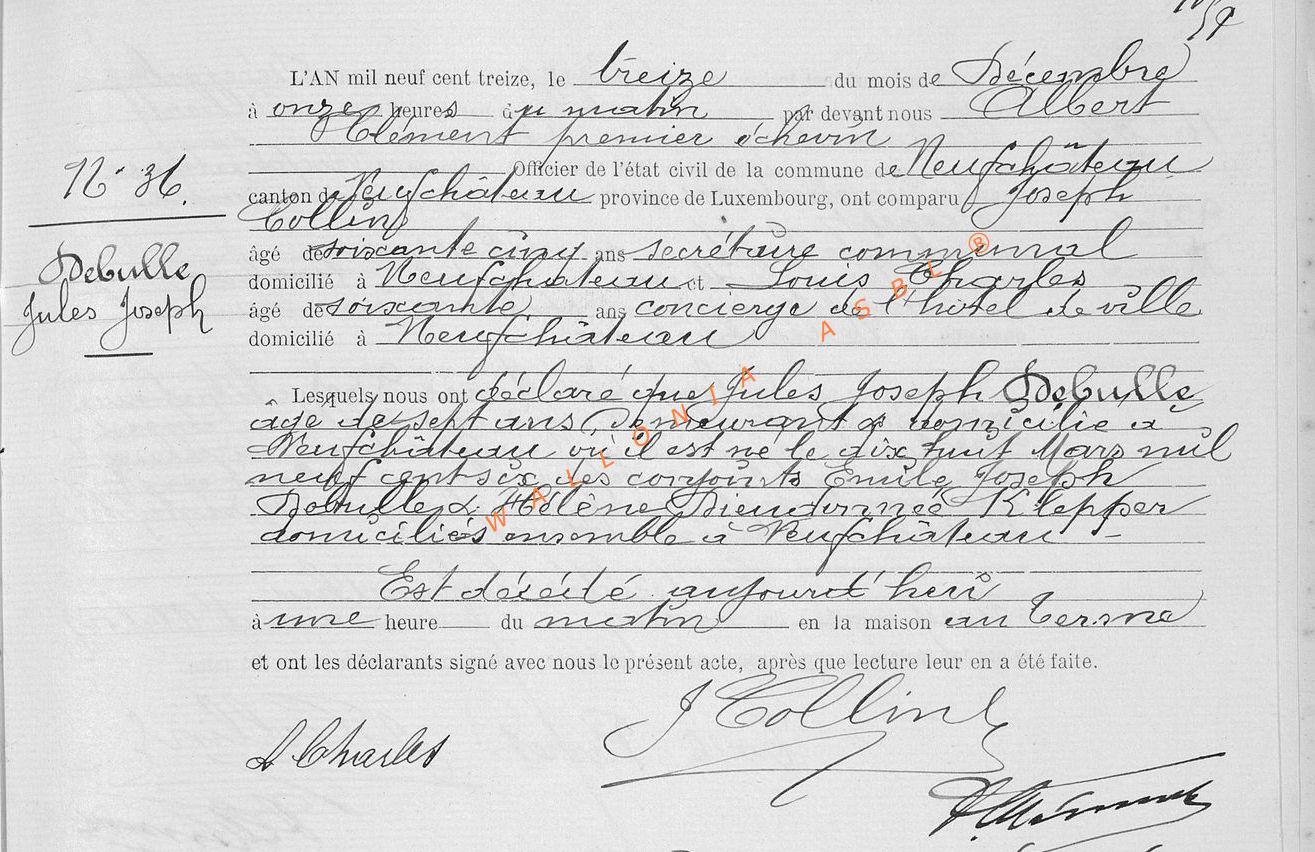 L'AN mil neuf cent treize, le treize du mois de Décembre
à onze heures du matin par devant nous Albert
Clément premier échevin
Officier de l'état civil de la commune de Neufchâteau
canton de Neufchâteau province de Luxembourg, ont comparu Joseph
Collin
âgé de soixante cinq ans secrétaire communal
domicilié à Neufchâteau et Louis Charles
âgé de soixante ans concierge de l'hôtel de ville
domicilié à Neufchâteau
N° 36.
Debulle
Jules Joseph
Lesquels nous ont déclaré que Jules Joseph Debulle
âgé de sept ans, demeurant & domicilié à
Neufchâteau où il est né le dix huit Mars mil
neuf cent six des conjoints Emile Joseph
Debulle & Hélène Dieudonnée Klepper
domiciliés ensemble à Neufchâteau -
Est décédé aujourd'hui
à une heure du matin en la maison au Terme
et ont les déclarants signé avec nous le présent acte, après que lecture leur en a été faite.
J Collin
L Charles
WALLONIA ASBL ®